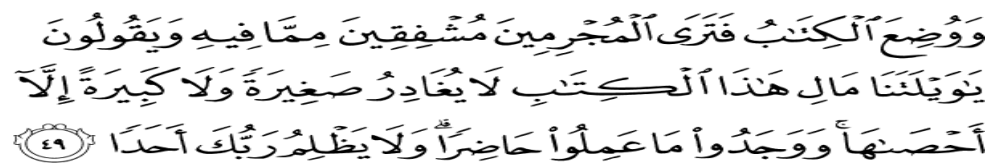 وَوُضِعَ ٱلۡكِتَٰبُ فَتَرَى ٱلۡمُجۡرِمِينَ مُشۡفِقِينَ مِمَّا فِيهِ وَيَقُولُونَ
يَٰوَيۡلَتَنَا مَالِ هَٰذَا ٱلۡكِتَٰبِ لَا يُغَادِرُ صَغِيرَةٗ وَلَا كَبِيرَةً إِلَّآ
أَحۡصَىٰهَاۚ وَوَجَدُواْ مَا عَمِلُواْ حَاضِرٗاۗ وَلَا يَظۡلِمُ رَبُّكَ أَحَدٗا ٤٩